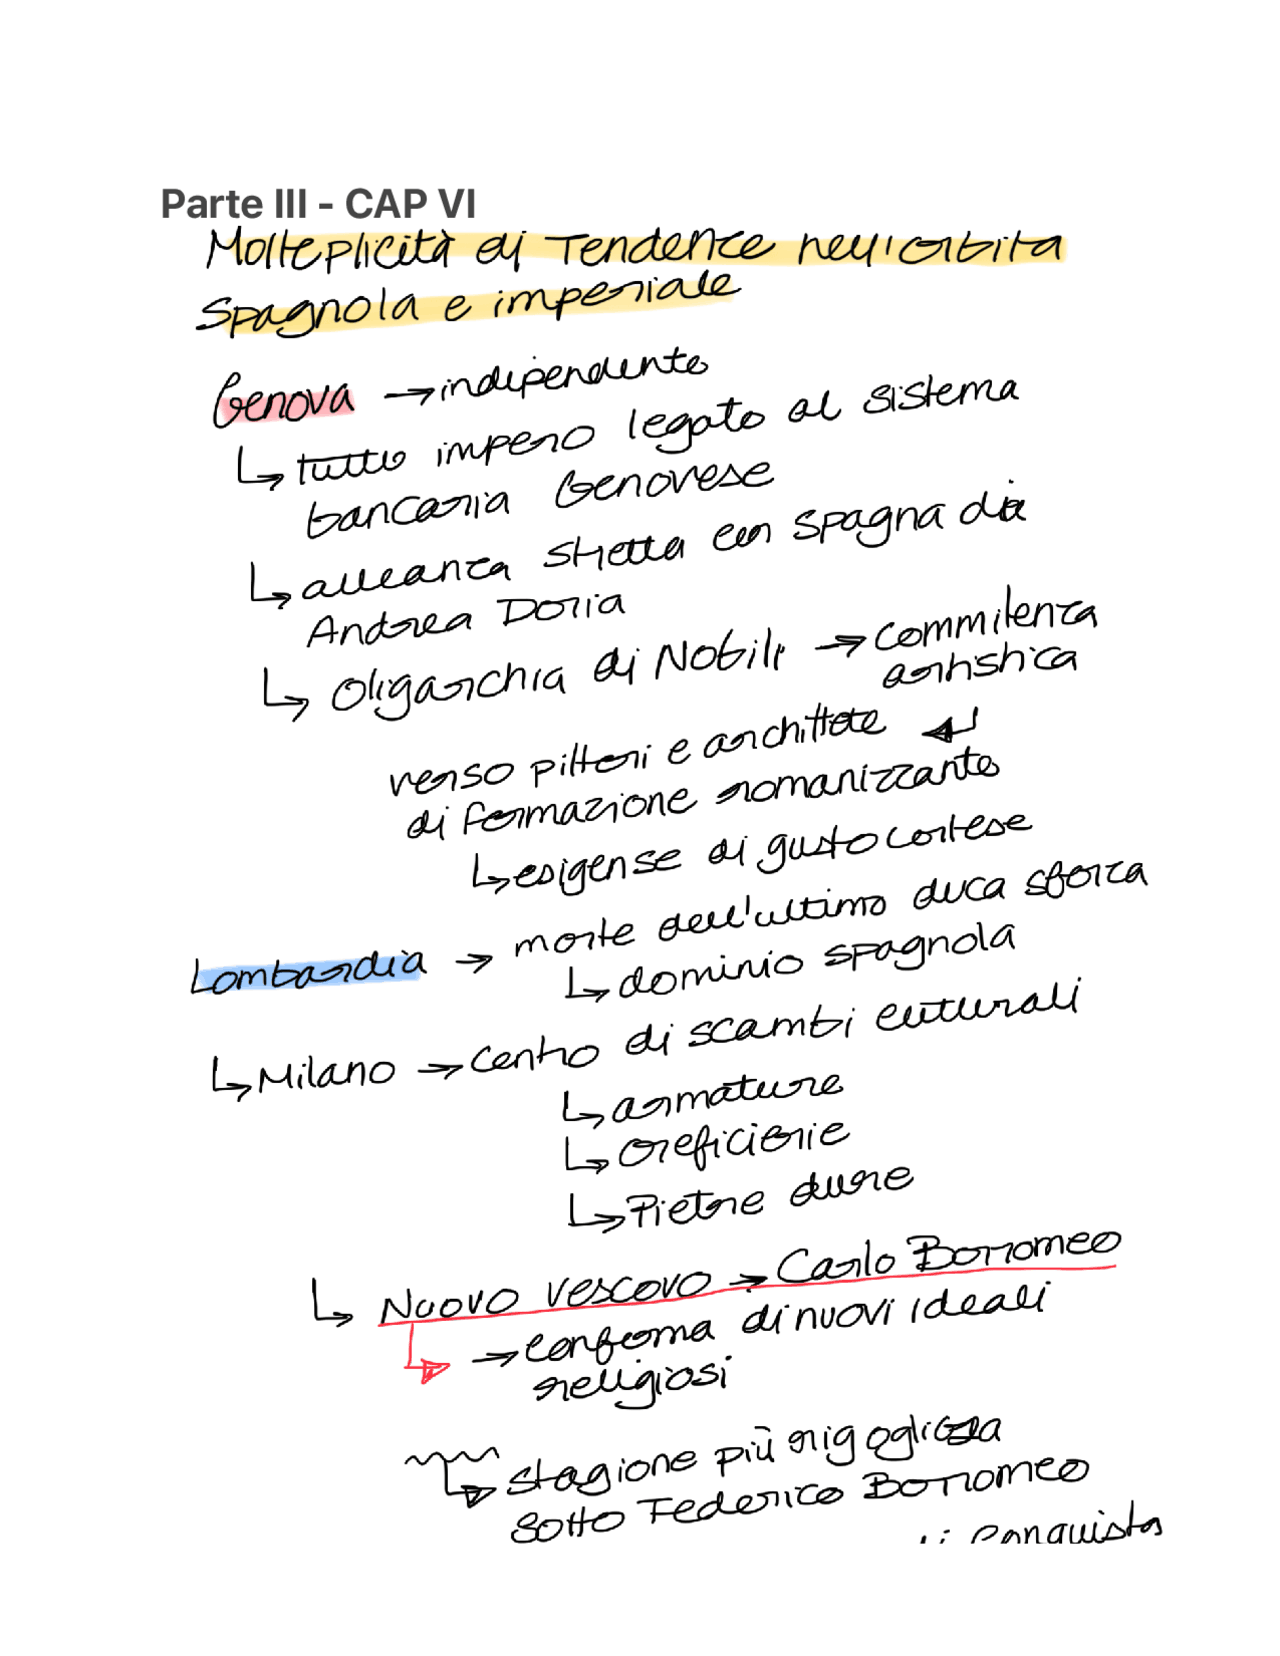 Parte III - CAP VI
Molteplicità di Tendenze nell'orbita
Spagnola e imperiale
Genova → indipendente
↳ tutto impero legato al sistema
bancaria Genovese
↳ alleanza stretta con spagna da
Andrea Doria
↳ Oligarchia di Nobili → commitenza
artistica
verso pittori e architette
di formazione romanizzante
↳ esigense di gusto cortese
Lombardia → morte dell'ultimo duca sforza
↳ dominio spagnola
↳ Milano → centro di scambi culturali
↳ armature
↳ oreficierie
↳ Pietre dure
↳ Nuovo vescovo → Carlo Borromeo
↳ → conferma di nuovi ideali
religiosi
↳ stagione più rigogliosa
sotto Federico Borromeo
di conquista